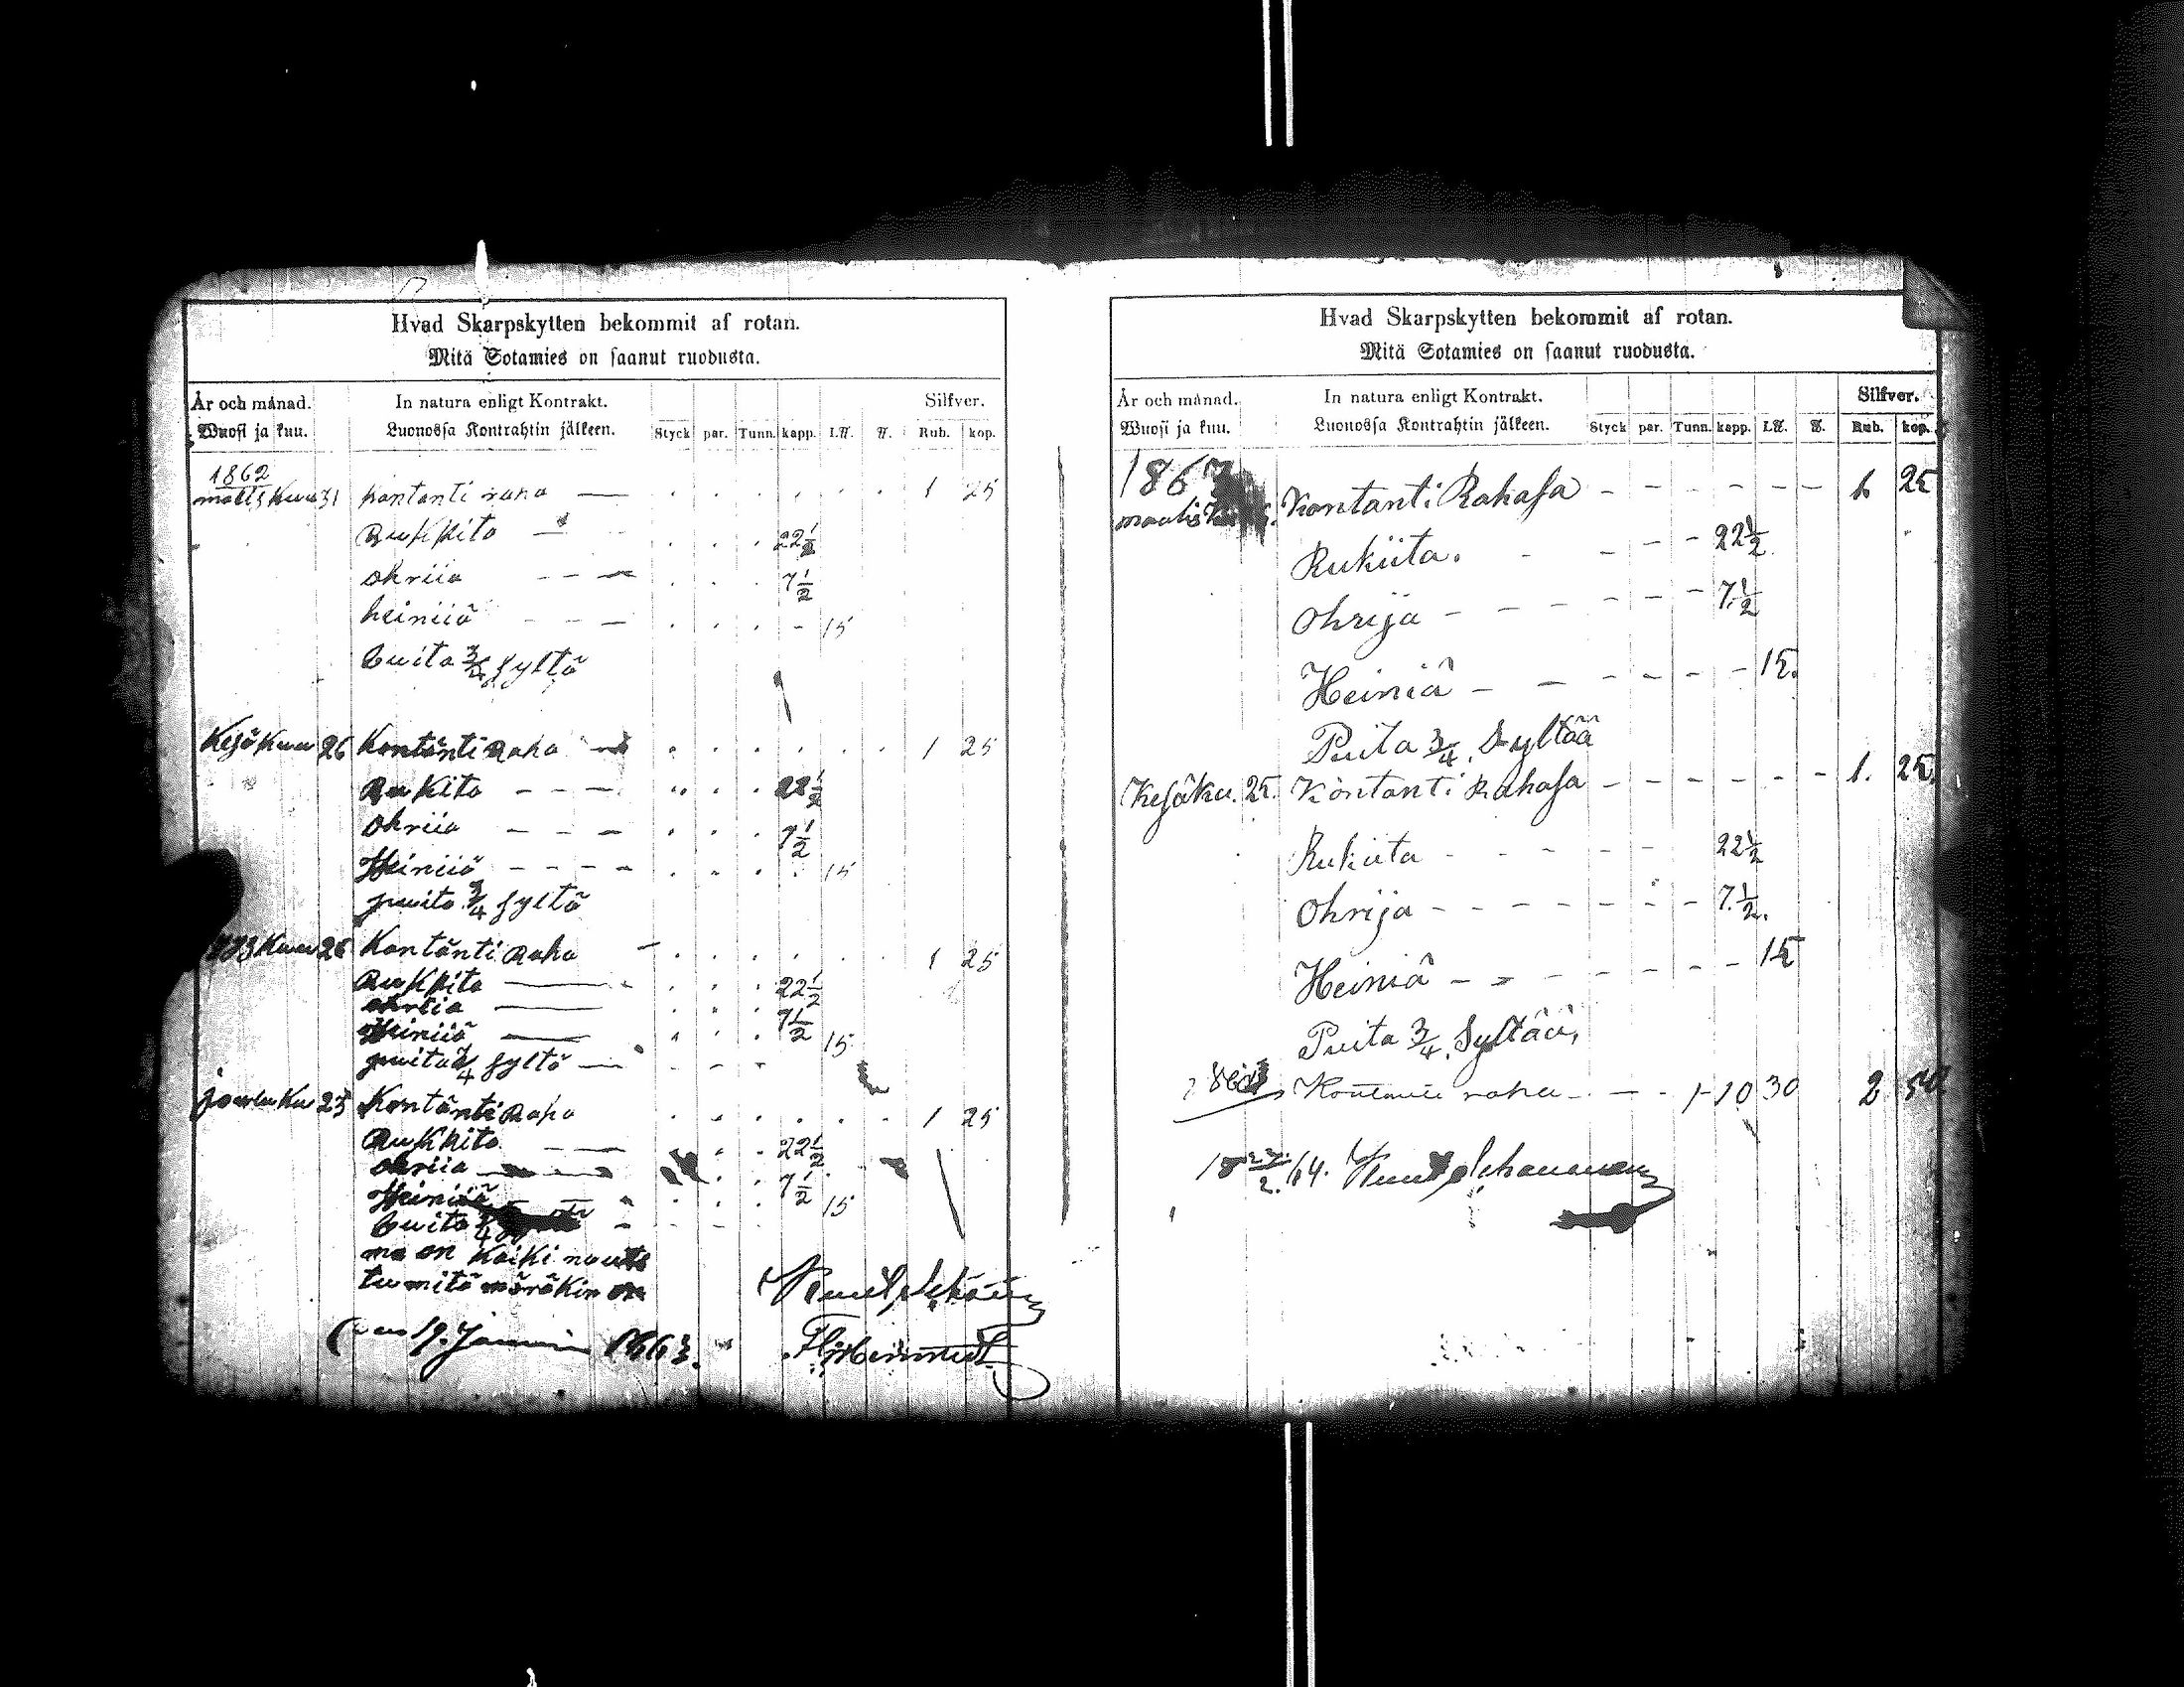 Hvad Skarpskytten bekommit af rotan.
Mitä Sotamies on saanut ruodusta.
År och månad. In natura enligt Kontrakt. Silfver.
Wuosi ja kuu. Luonossa Kontrahtin jälkeen. Styck par. Tunn. kapp. L℔. ℔. Rub. kop.
1862
31 kontanti raha — 1 25
Rukkita — 22½
ohriia — — — 7½
heiniiä — — — 15
Puita ¾ syltä
Kesä Kuu 26 Kontänti Raha — 1 25
Rukita — — — 22½
Ohriia — — — 7½
Heiniiä — — — — 15
puita ¾ syltä
Kuu 26 Kontänti Raha — 1 25
Rukkita — 22½
ohriia — 7½
Heiniiä — 15
puita ¾ syltä —
joulu Ku 23 Kontänti Raha 1 25
Rukkita — — 22½
ohriia — 7½
Heiniiä — 15
Puita ¾
on kaiki
tu mitä märäkin on
19. 1863.
Hvad Skarpskytten bekommit af rotan.
Mitä Sotamies on saanut ruodusta.
År och månad. In natura enligt Kontrakt. Silfver.
Wuosi ja kuu. Luonossa Kontrahtin jälkeen. Styck par. Tunn. kapp. L℔. ℔. Rub. kop.
1863
maalis Kontanti Rahasa — — — — — — 1. 25
Rukiita. — — — 22½
Ohrija — — — — — — 7½
Heiniä — — — — — — 15.
Puita ¾. Syltää
Kesäku. 25. Kontanti Rahasa — — — — — — 1. 25.
Rukiita — — — — — 22½
Ohrija — — — — — — — 7½.
Heiniä — — — — — — — 15
Puita ¾. Syltää,
raha — — 1 10 30 2 50
64.